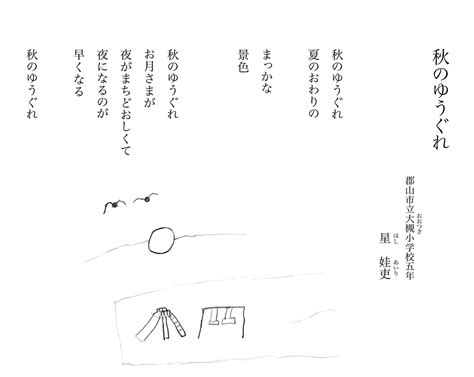 秋のゆうぐれ
郡山市立大槻小学校五年
おおつき
星 娃吏
ほし あいり
秋のゆうぐれ
夏のおわりの
まっかな
景色
秋のゆうぐれ
お月さまが
夜がまちどおしくて
夜になるのが
早くなる
秋のゆうぐれ